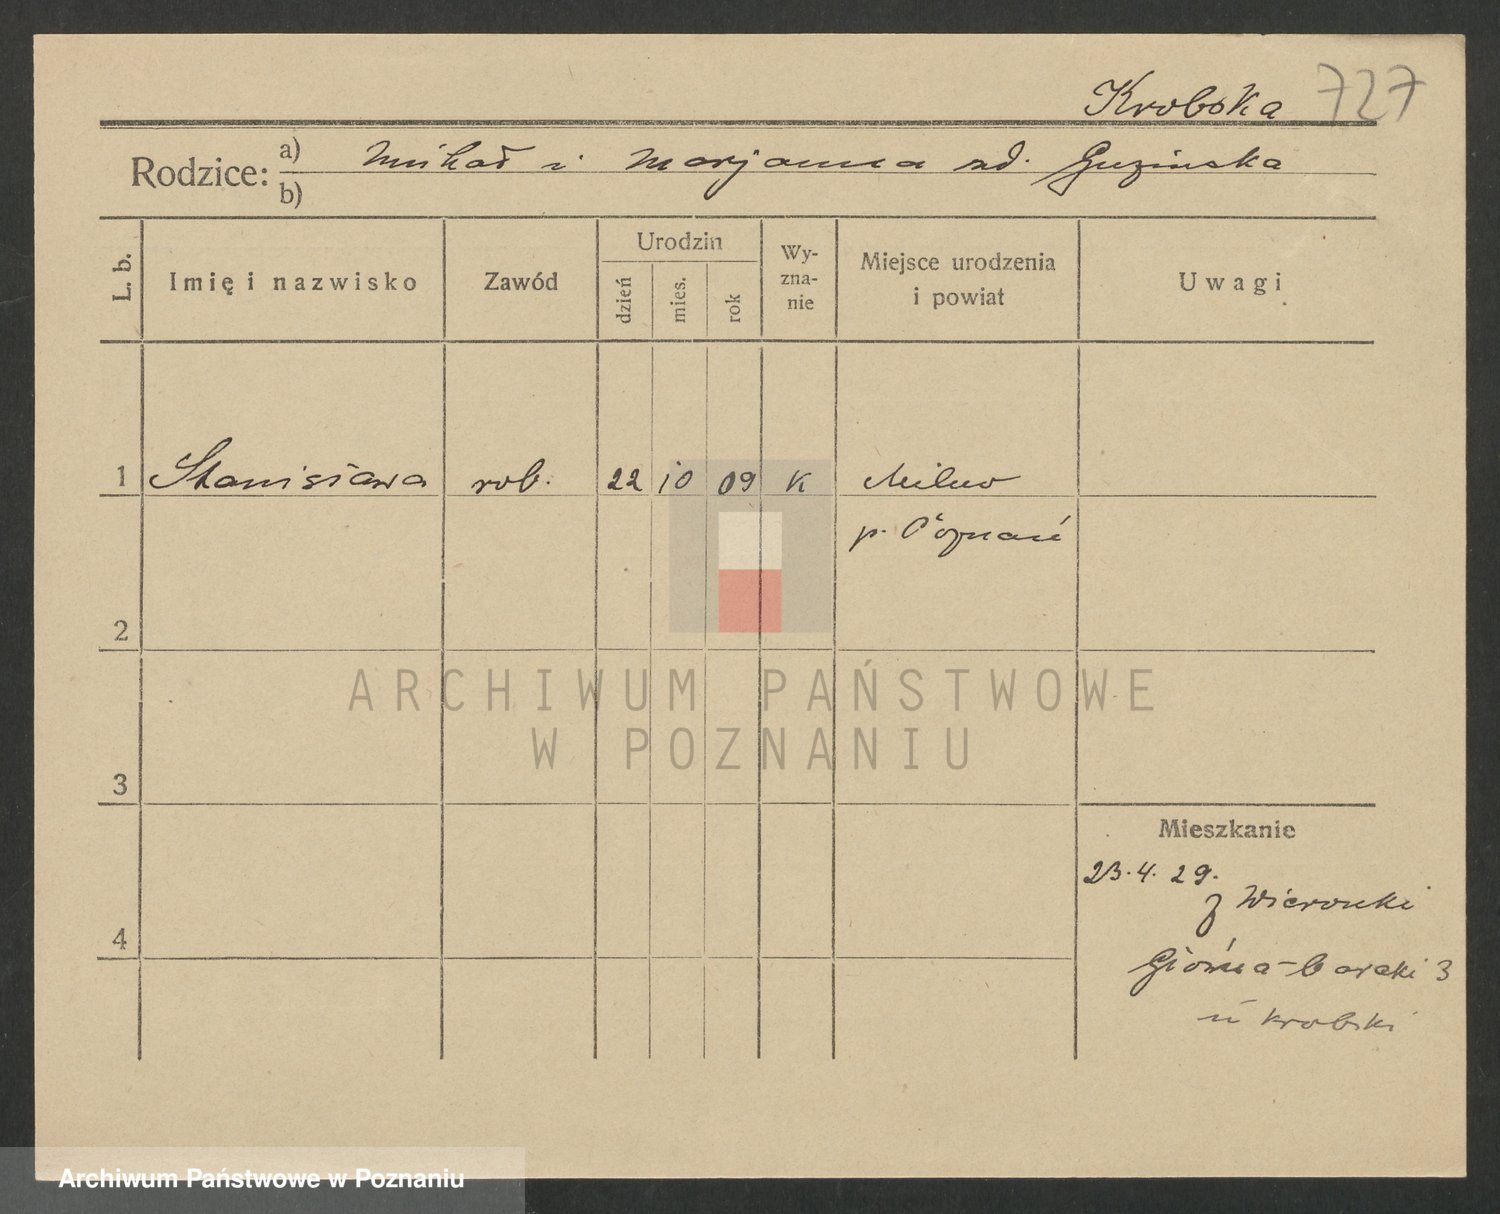 Krobska 727
Rodzice: a) Michał i Marjanna zd. Guzinska
b)
L. b.
Imię i nazwisko
Zawód
Urodzin
dzień
mies.
rok
Wy-
zna-
nie
Miejsce urodzenia
i powiat
Uwagi
1 Stanisława rob. 22 10 09 K
p. Poznań
2
ARCHIWUM PAŃSTWOWE
W POZNANIU
3
Mieszkanie
23.4.29.
z Wieronki
4
Główna-baraki 3
u Krobski
Archiwum Państwowe w Poznaniu